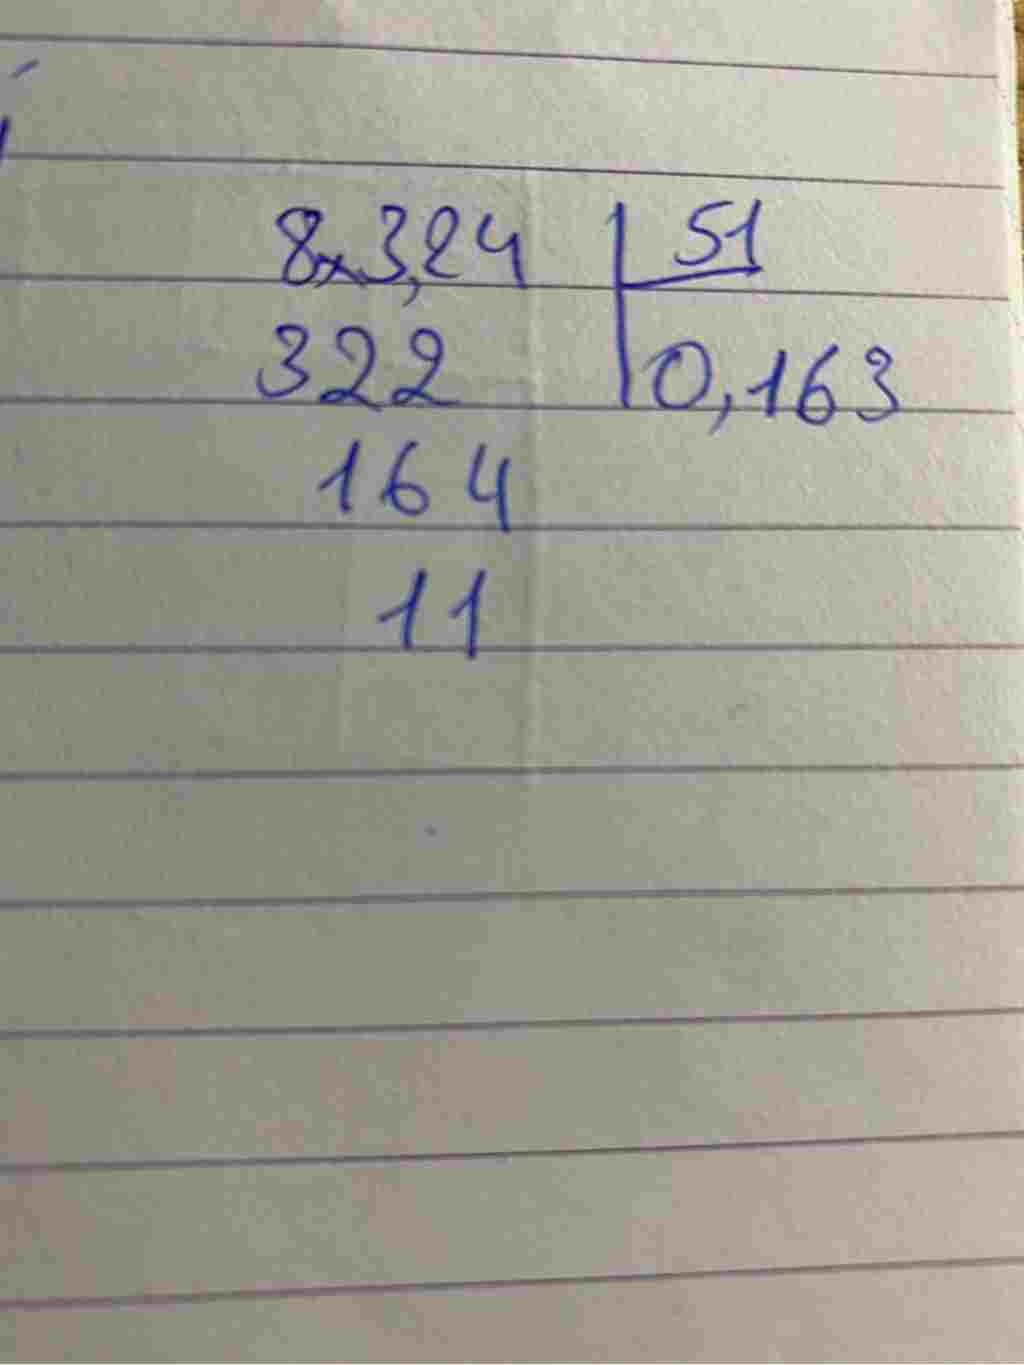 8x3,24 51
322 0,163
164
11